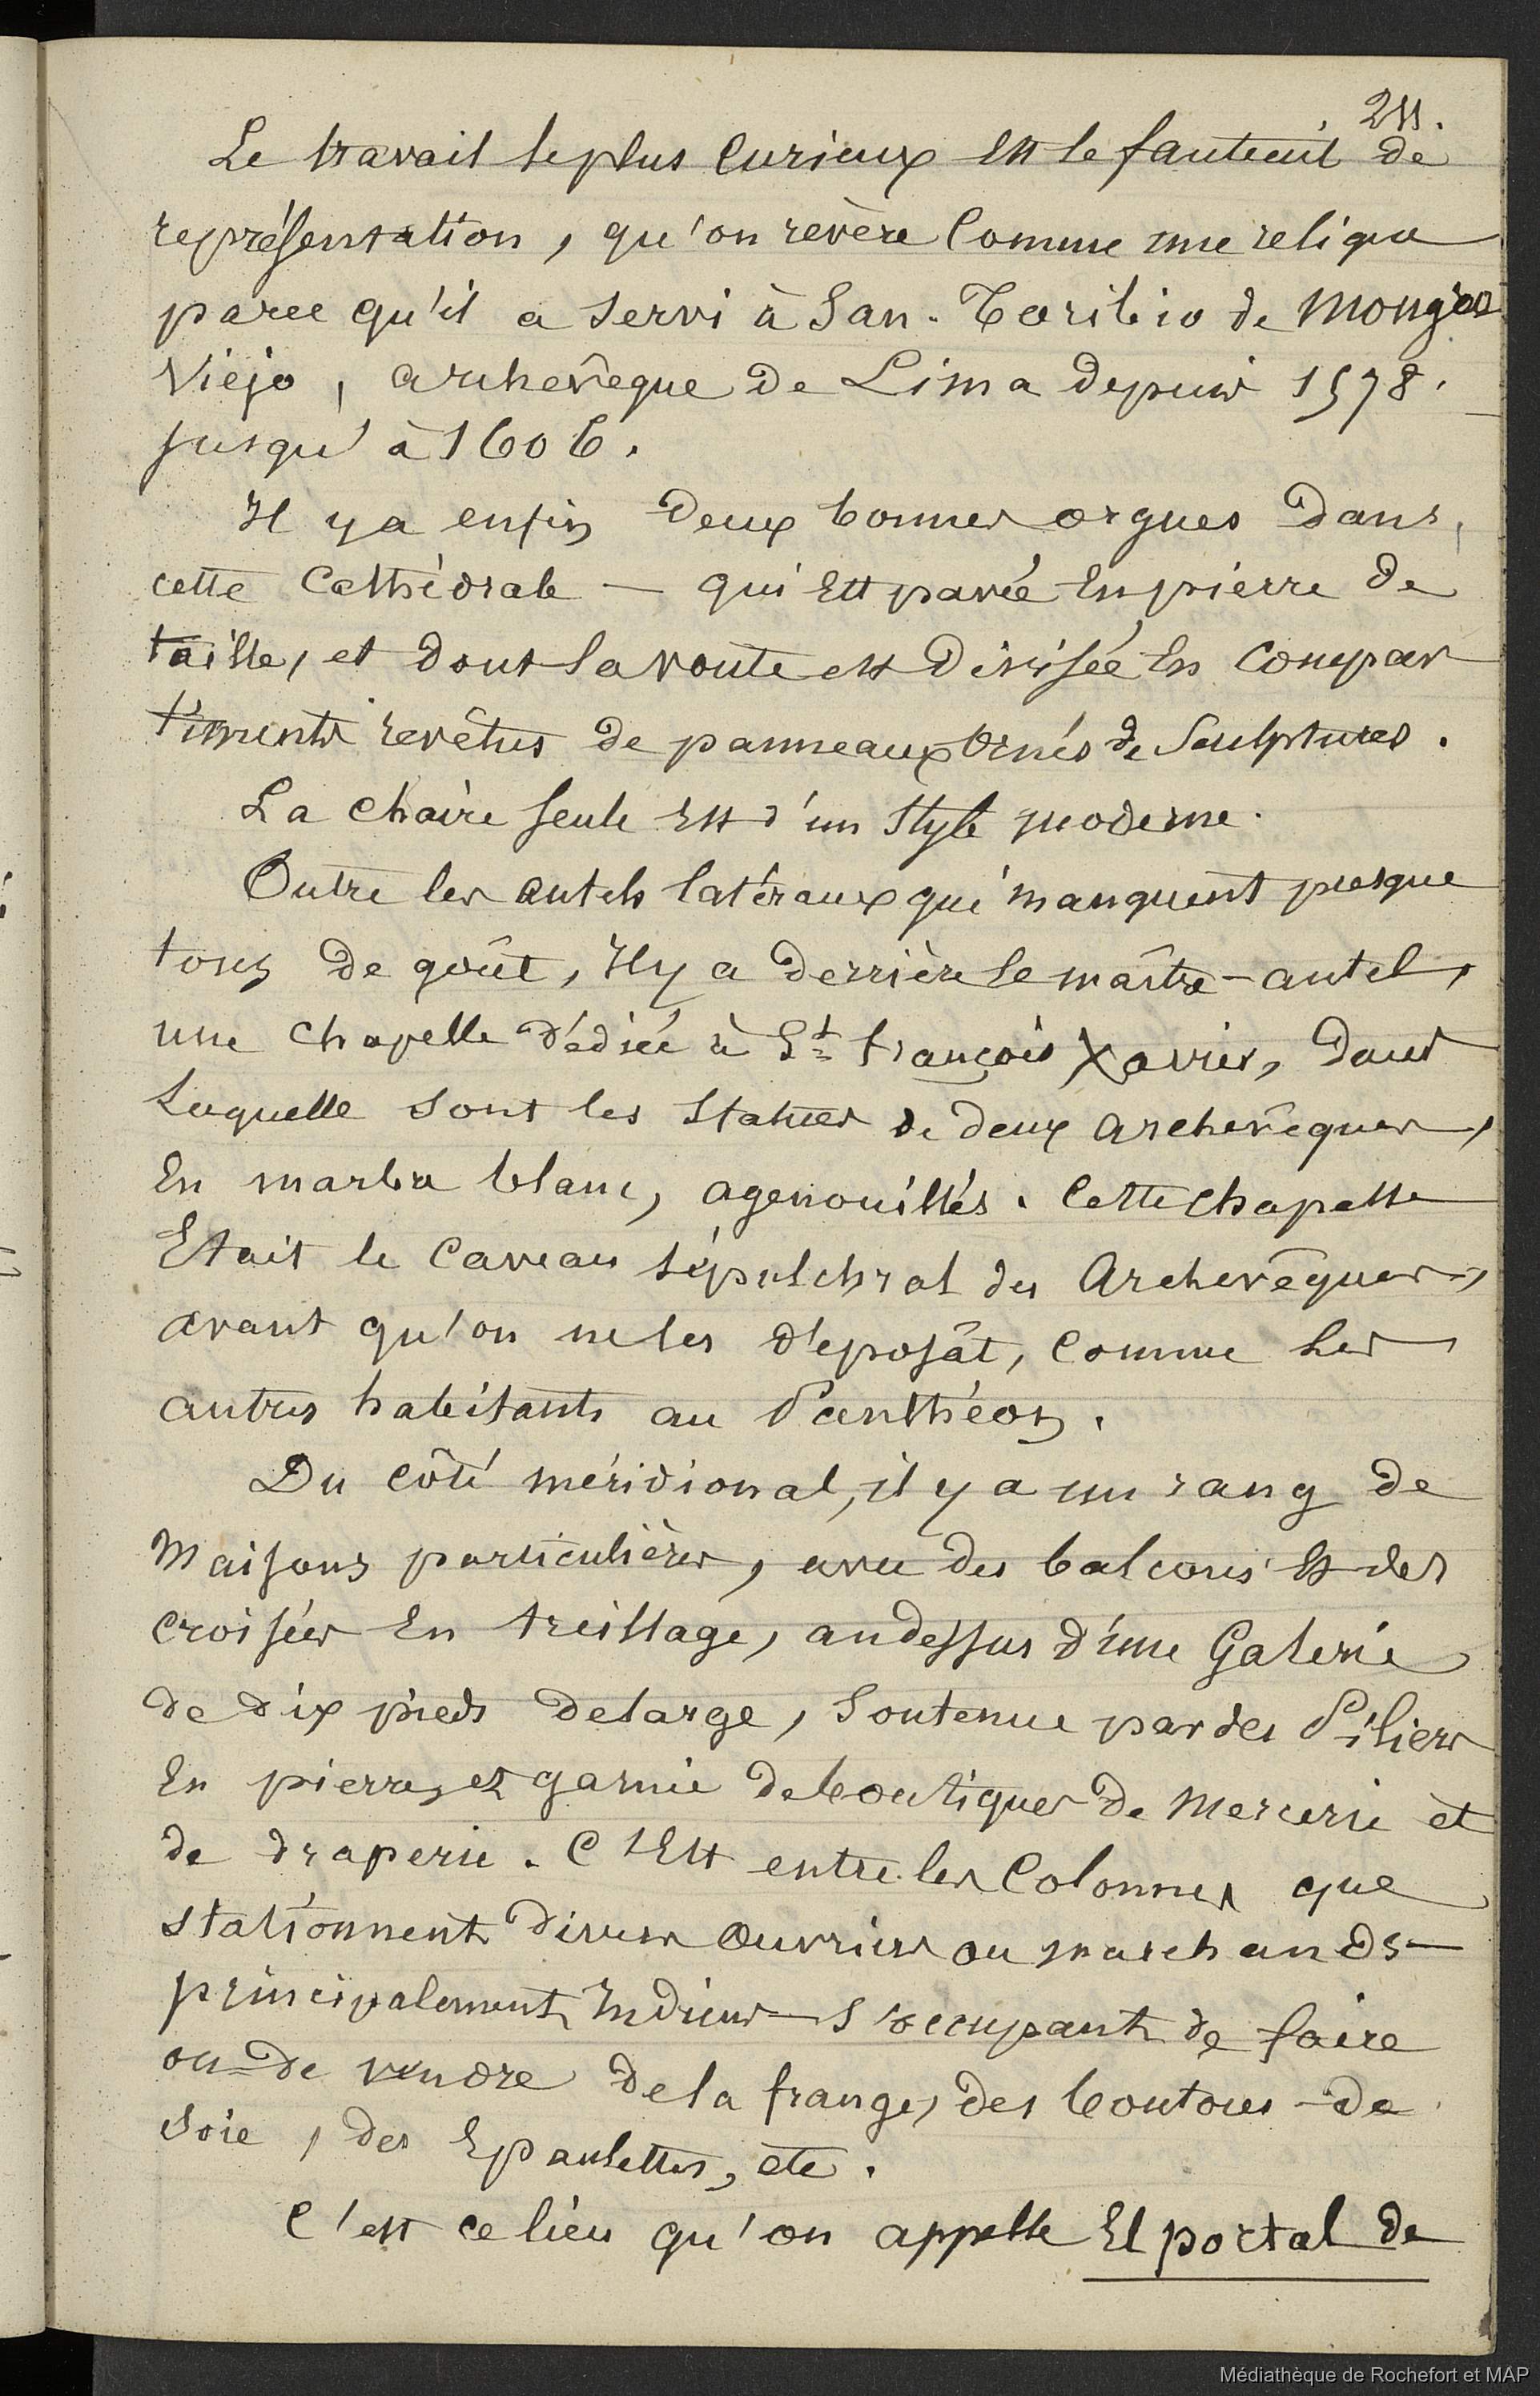 211.
Le travail le plus curieux est le fauteuil de
représentation, qu'on révère comme une relique
parce qu'il a servi à San-Toribio de Mongro
Viejo, archevêque de Lima depuis 1578.
jusqu'à 1606.
Il y a enfin deux bonnes orgues dans
cette Cathédrale — qui est pavée en pierre de
taille, et dont la voute est divisée en compar
timents revêtus de panneaux ornés de Sculptures.
La chaire seule est d'un style moderne.
Outre les autels latéraux qui manquent presque
tous de goût, il y a derrière le maître-autel,
une chapelle dédiée à St François Xavier, dans
laquelle sont les statues de deux archevêques,
en marbre blanc, agenouillés. Cette chapelle
Etait le Caveau sépulchral des Archevêques,
avant qu'on ne les déposât, comme les
autres habitants au Panthéon.
Du côté méridional, il y a un rang de
Maisons particulières, avec des balcons et des
croisées en treillage, au dessus d'une Galerie
de dix pieds de large, soutenue par des Piliers
en pierres et garnie de boutiques de Mercerie et
de draperie. C'est entre les Colonnes que
stationnent divers ouvriers ou marchands —
principalement Indiens — s'occupant de faire
ou de vendre de la frange, des boutons de
soie, des Epaulettes, etc.
C'est ce lieu qu'on appelle El portal de
Médiathèque de Rochefort et MAP